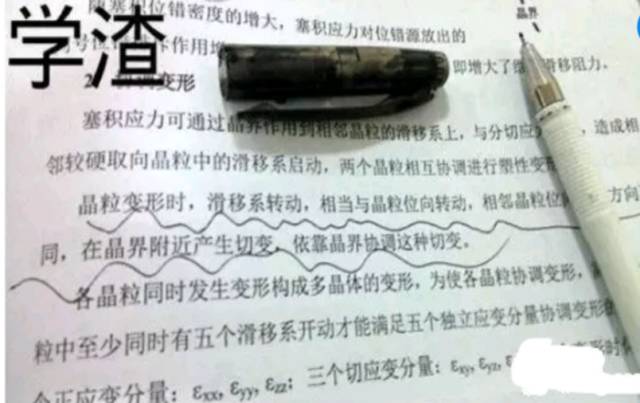 学渣
随塞积位错密度的增大，塞积应力对位错源放出的
晶界
作用增
即增大了继
滑移阻力。
变形
塞积应力可通过晶界作用到相邻晶粒的滑移系上，与分切应
，造成相
邻较硬取向晶粒中的滑移系启动，两个晶粒相互协调进行塑性变
晶粒变形时，滑移系转动，相当与晶粒位向转动，相邻晶粒位
方向
同，在晶界附近产生切变，依靠晶界协调这种切变。
各晶粒同时发生变形构成多晶体的变形，为使各晶粒协调变形，
粒中至少同时有五个滑移系开动才能满足五个独立应变分量协调变形
个正应变分量：εxx, εyy, εzz；三个切应变分量：εxy, εyz,